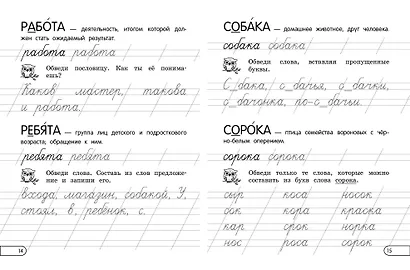 РАБОТА — деятельность, итогом которой дол-
жен стать ожидаемый результат.
работа работа
Обведи пословицу. Как ты её понима-
ешь?
Каков мастер, такова
и работа.
РЕБЯТА — группа лиц детского и подросткового
возраста; обращение к ним.
ребята ребята
Обведи слова. Составь из слов предложе-
ние и запиши его.
входа, магазин, собакой, У,
стоял, в, ребёнок, с.
14
СОБАКА — домашнее животное, друг человека.
собака собака
Обведи слова, вставляя пропущенные
буквы.
С_бака, с_бачья, с_бачки,
с_бачонка, по-с_бачьи.
СОРОКА — птица семейства вороновых с чёр-
но-белым оперением.
сорока сорока
Обведи только те слова, которые можно
составить из букв слова сорока.
сыр коса носок
сок кора краска
кар срок норка
нос роса сорок
15